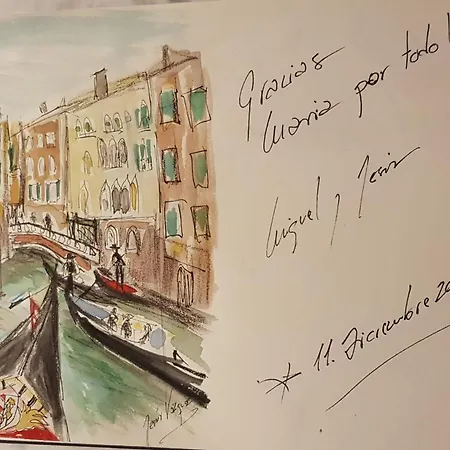 Gracias
Maria por todo !
Miguel y Jesús
11. Diciembre 20